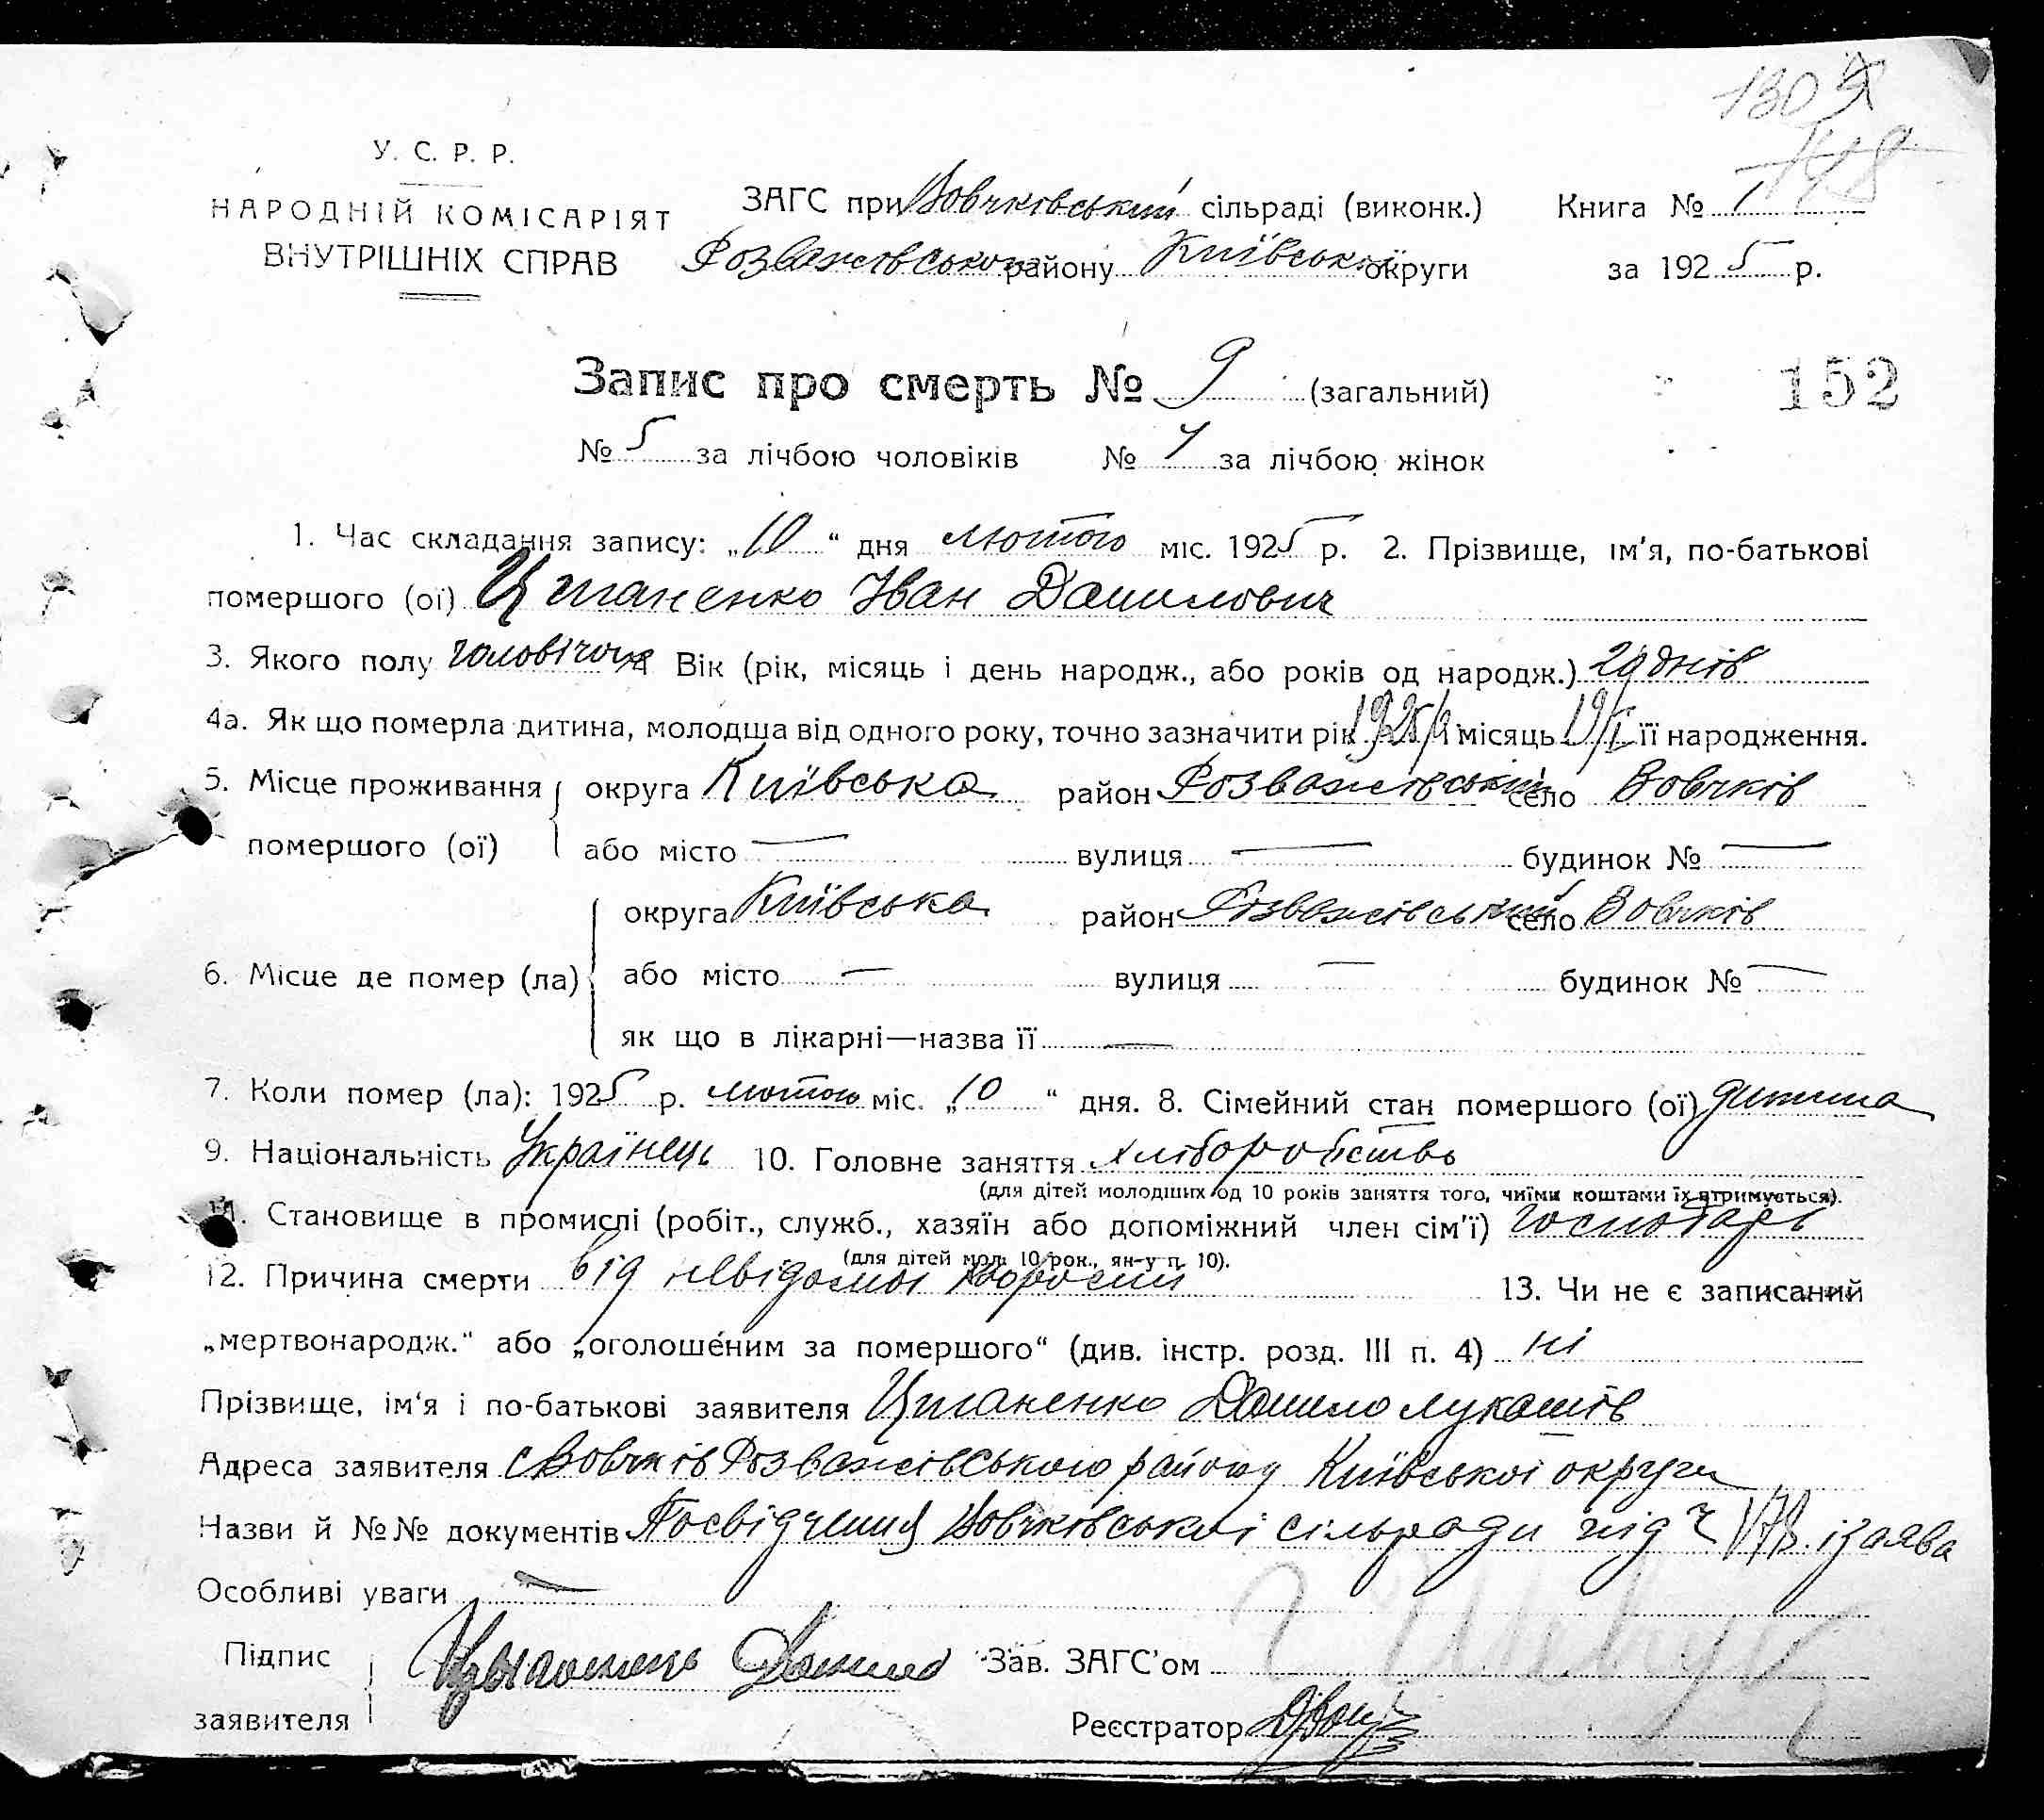 130
148
У. С. Р. Р.
НАРОДНІЙ КОМІСАРІЯТ
ВНУТРІШНІХ СПРАВ
ЗАГС при Вовчківський сільраді (виконк.) Книга № 1
Розважівського району Київської округи за 1925 р.
Запис про смерть № 9 (загальний)
152
№ 5 за лічбою чоловіків № 4 за лічбою жінок
1. Час складання запису: „10“ дня лютого міс. 1925 р. 2. Прізвище, ім'я, по-батькові
помершого (ої) Циганенко Іван Данилович
3. Якого полу чоловічого Вік (рік, місяць і день народж., або років од народж.) 29 днів
4а. Як що померла дитина, молодша від одного року, точно зазначити рік 1925 місяць її народження.
5. Місце проживання округа Київська район Розважівський село Вовчків
помершого (ої) або місто — вулиця — будинок № —
округа Київська район Розважівський село Вовчків
6. Місце де помер (ла) або місто — вулиця — будинок № —
як що в лікарні—назва її —
7. Коли помер (ла): 1925 р. лютого міс. „10“ дня. 8. Сімейний стан помершого (ої) дитина
9. Національність Українець 10. Головне заняття хліборобство
(для дітей молодших од 10 років заняття того, чиїми коштами їх втримується).
11. Становище в промислі (робіт., служб., хазяїн або допоміжний член сім'ї) господарь
(для дітей мол. 10 рок., як-у п. 10).
12. Причина смерти від невідомої хороби 13. Чи не є записаний
„мертвонародж." або „оголошéним за помершого“ (див. інстр. розд. III п. 4) ні
Прізвище, ім'я і по-батькові заявителя Циганенко Данило Лукашів
Адреса заявителя с Вовчків Розважівського району Київської округи
Назви й №№ документів Посвідчення Вовчківської сільради під ч 178 і заява
Особливі уваги —
Підпис Данило Зав. ЗАГС'ом
заявителя Реєстратор